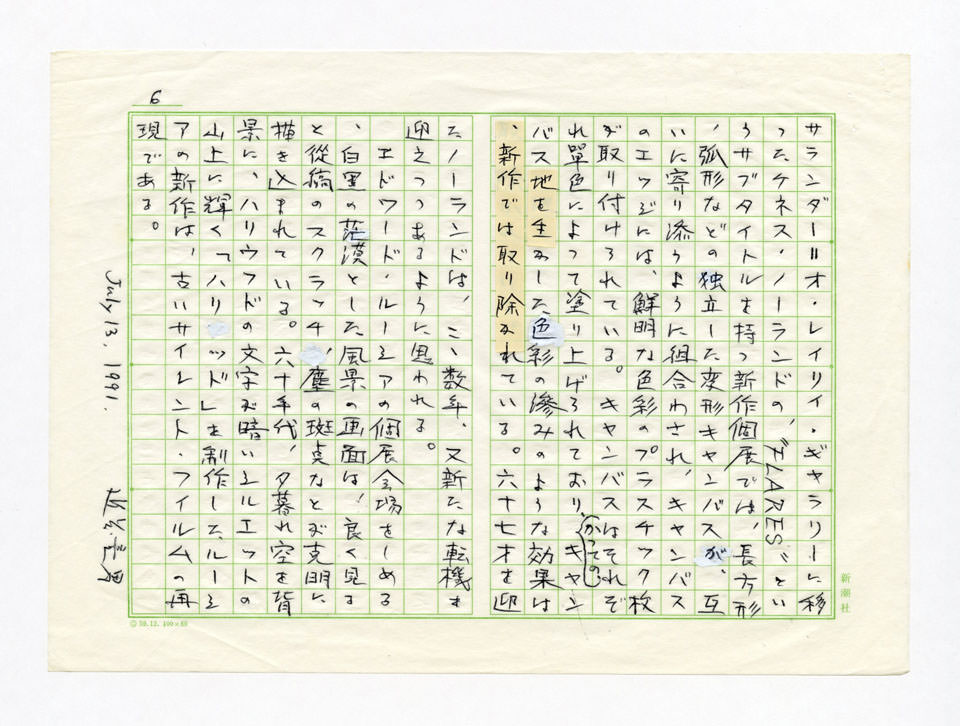 6
サランダー=オ・レイリイ・ギャラリーに移
ったケネス・ノーランドの、"FLARES"とい
うサブタイトルを持つ新作個展では、長方形
、弧形などの独立した変形キャンバスが、互
いに寄り添うように組合わされ、キャンバス
のエッジには、鮮明な色彩のプラスチック枚
が取り付けられている。キャンバスはそれぞ
れ單色によって塗り上げられており、かつてのキャン
バス地を生かした色彩の滲みのような効果は
、新作では取り除かれている。六十七才を迎
えたノーランドは、こゝ数年、又新たな転機を
迎えつつあるように思われる。
エドワード・ルーシアの個展会場をしめる
、白黒の茫漠とした風景の画面は、良く見る
と従横のスクラッチ、塵の斑点などが克明に
描き込まれている。六十年代、夕暮れ空を背
景に、ハリウッドの文字が暗いシルエットの
山上に輝く「ハリウッド」を制作したルーシ
アの新作は、古いサイレント・フイルムの再
現である。
July 13, 1991.
新潮社
59.12. 100×60